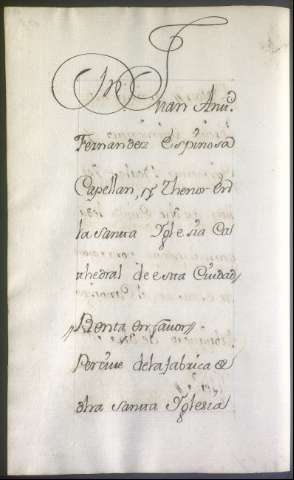 Juan Anttº.
Fernandez Espinosa
Capellan, y Thenor en
la Santa Yglesia Ca
thedral de esta Ciudad
Renta en favor
Percive de la fabrica de
dha Santa Yglesia